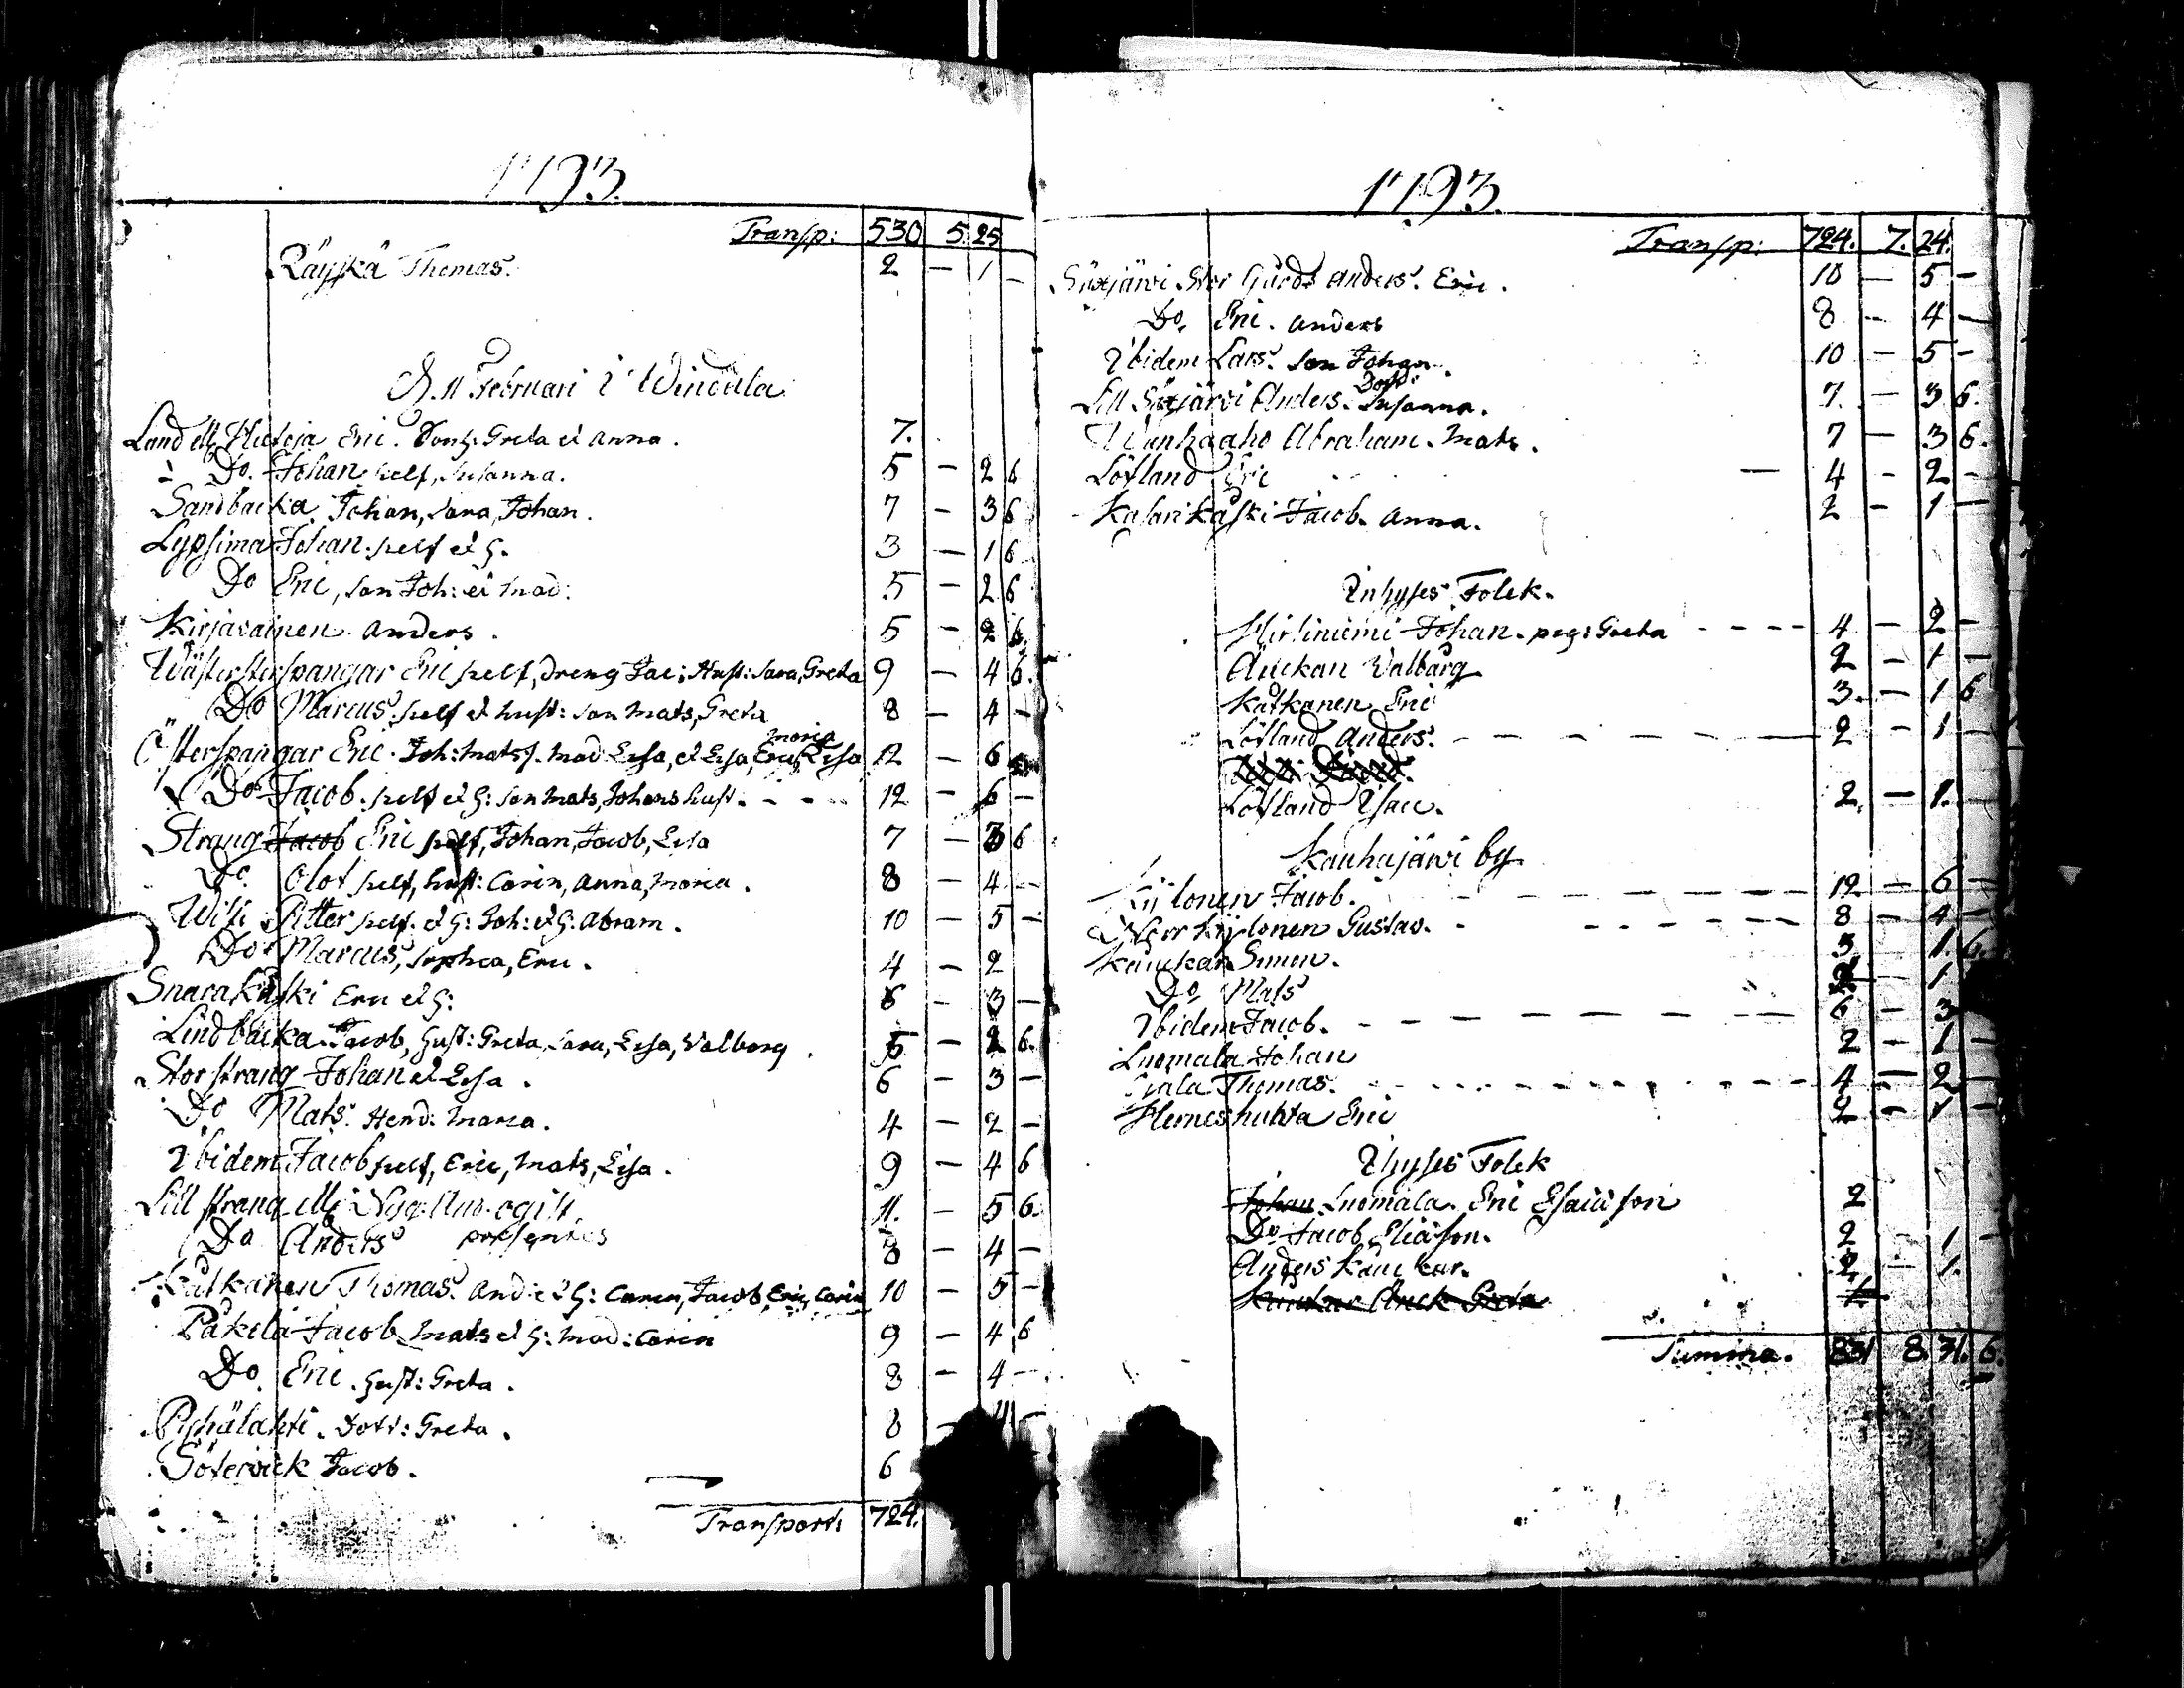 1793.
Transp: 530 5. 25
Räyskä Thomas. 2 — 1 —
D. 11 Februari i Windala
Land ell. Hietoja Eric. Greta et Anna. 7.
Do. Johan self, Susanna. 5 — 2 6
Sandbacka Johan, Sara, Johan. 7 — 3 6
Lypsima Johan. self et h. 3 — 1 6
Do Eric, son Joh: et mad: 5 — 2 6
Kirjavainen Anders. 5 — 2 6.
Eric self, dreng Jac: Hust: Sara, Greta 9 — 4 6.
Do Marcus. self et hust: son Mats, Greta 8 — 4 —
maria
Österspangar Eric. Joh: Mats s. mad Lisa, et Lisa, Eric, Lisa 12 — 6
Do Jacob. self et h: son Mats, Johans hust. - - - 12 — 6 —
Strang Jacob Eric self, Johan, Jacob, Lisa 7 — 3 6
Do. Olof self, hust: Carin, Anna, Maria. 8 — 4 —
Petter self. et h: Joh: et h. Abram. 10 — 5 —
Do Marcus, Sophia, Eric. 4 — 2
Snarakåski Eric et h: 6 — 3 —
Lindbacka Jacob, hust: Greta, Sara, Lisa, Valborg. 5 — 2 6.
Storstrang Johan et Lisa. 6 — 3 —
Do Mats. Hend: Maria. 4 — 2 —
Ibidem Jacob self, Eric, Mats, Lisa. 9 — 4 6
Lill strang ell. 11. — 5 6.
Do Anders 8 — 4 —
Katkanen Thomas. And: et h: Caren, Jacob, Eric, Carin 10 — 5 —
Påkela Jacob Mats et h: mad: Carin 9 — 4 6
Do. Eric. hust: Greta. 8 — 4 —
Dott: Greta. 8 — 4 —
Söterwick Jacob. 6
Transport: 724.
1793.
Transp: 724. 7. 24.
Stor Gårds Anders. Eric. 10 — 5 —
Do. Eric. Anders 8 — 4 —
Ibidem Lars. son Johan. 10 — 5 —
Dott:
Lill Anders. Susanna. 7. — 3 6.
Wanhaaho Abraham. Mats. 7 — 3 6.
Löfland Eric — 4 — 2 —
Jacob. Anna. 2 — 1 —
Inhyses Folck.
Johan. pig: Greta - - - - 4 — 2 —
Valbårg 2 — 1 —
Katkanen Eric 3. — 1 6
Löfland Anders. - - - - - 2 — 1
Löfland Isac. 2. — 1. —
Kauhajärwi by
Jacob. - - - - - 12 — 6 —
Gustav. - - - - 8 — 4 —
Kauckar Simon. 3 1. 6.
Do, Mats 2 — 1
Ibidem Jacob. - - - - - 6 — 3
Luomala Johan 2 — 1 —
Thomas. - - - - - 4 — 2 —
Herneshuhta Eric 2 — 1 —
Ihyses Folck
Johan Luomala. Eric Esaiason 2
Do Jacob Eliason. 2 — 1 —
Anders Kauckar. 2. — 1.
Greta 1.
Summa. 831 8. 31. 6.